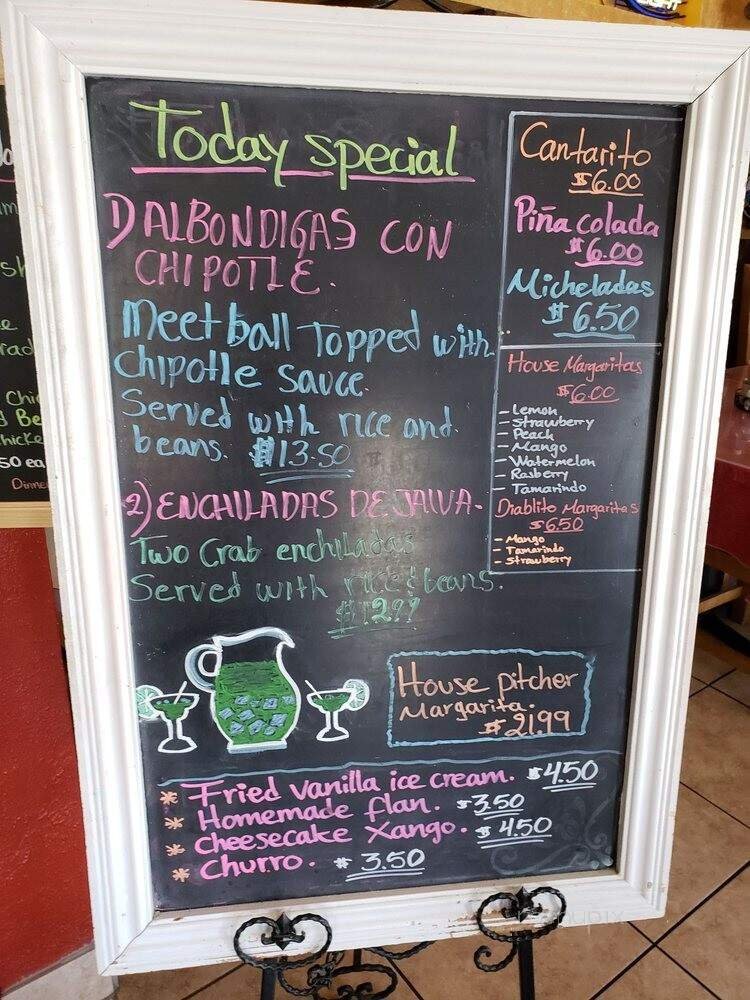 Today special
1) ALBONDIGAS CON
CHIPOTLE.
Meet ball Topped with
Chipotle sauce.
Served with rice and
beans. $13.50
2) ENCHILADAS DE JAIVA.
Two Crab enchiladas
Served with rice & beans.
$12.99
Cantarito
$6.00
Piña colada
$6.00
Micheladas
$6.50
House Margaritas
$6.00
- Lemon
- Strawberry
- Peach
- Mango
- Watermelon
- Rasberry
- Tamarindo
Diablito Margaritas
$6.50
- Mango
- Tamarindo
- Strawberry
House pitcher
Margarita.
$21.99
* Fried vanilla ice cream. $4.50
* Homemade flan. $3.50
* Cheesecake Xango. $4.50
* Churro. $3.50
Chi
Be
hicke
50 ea
Dinne